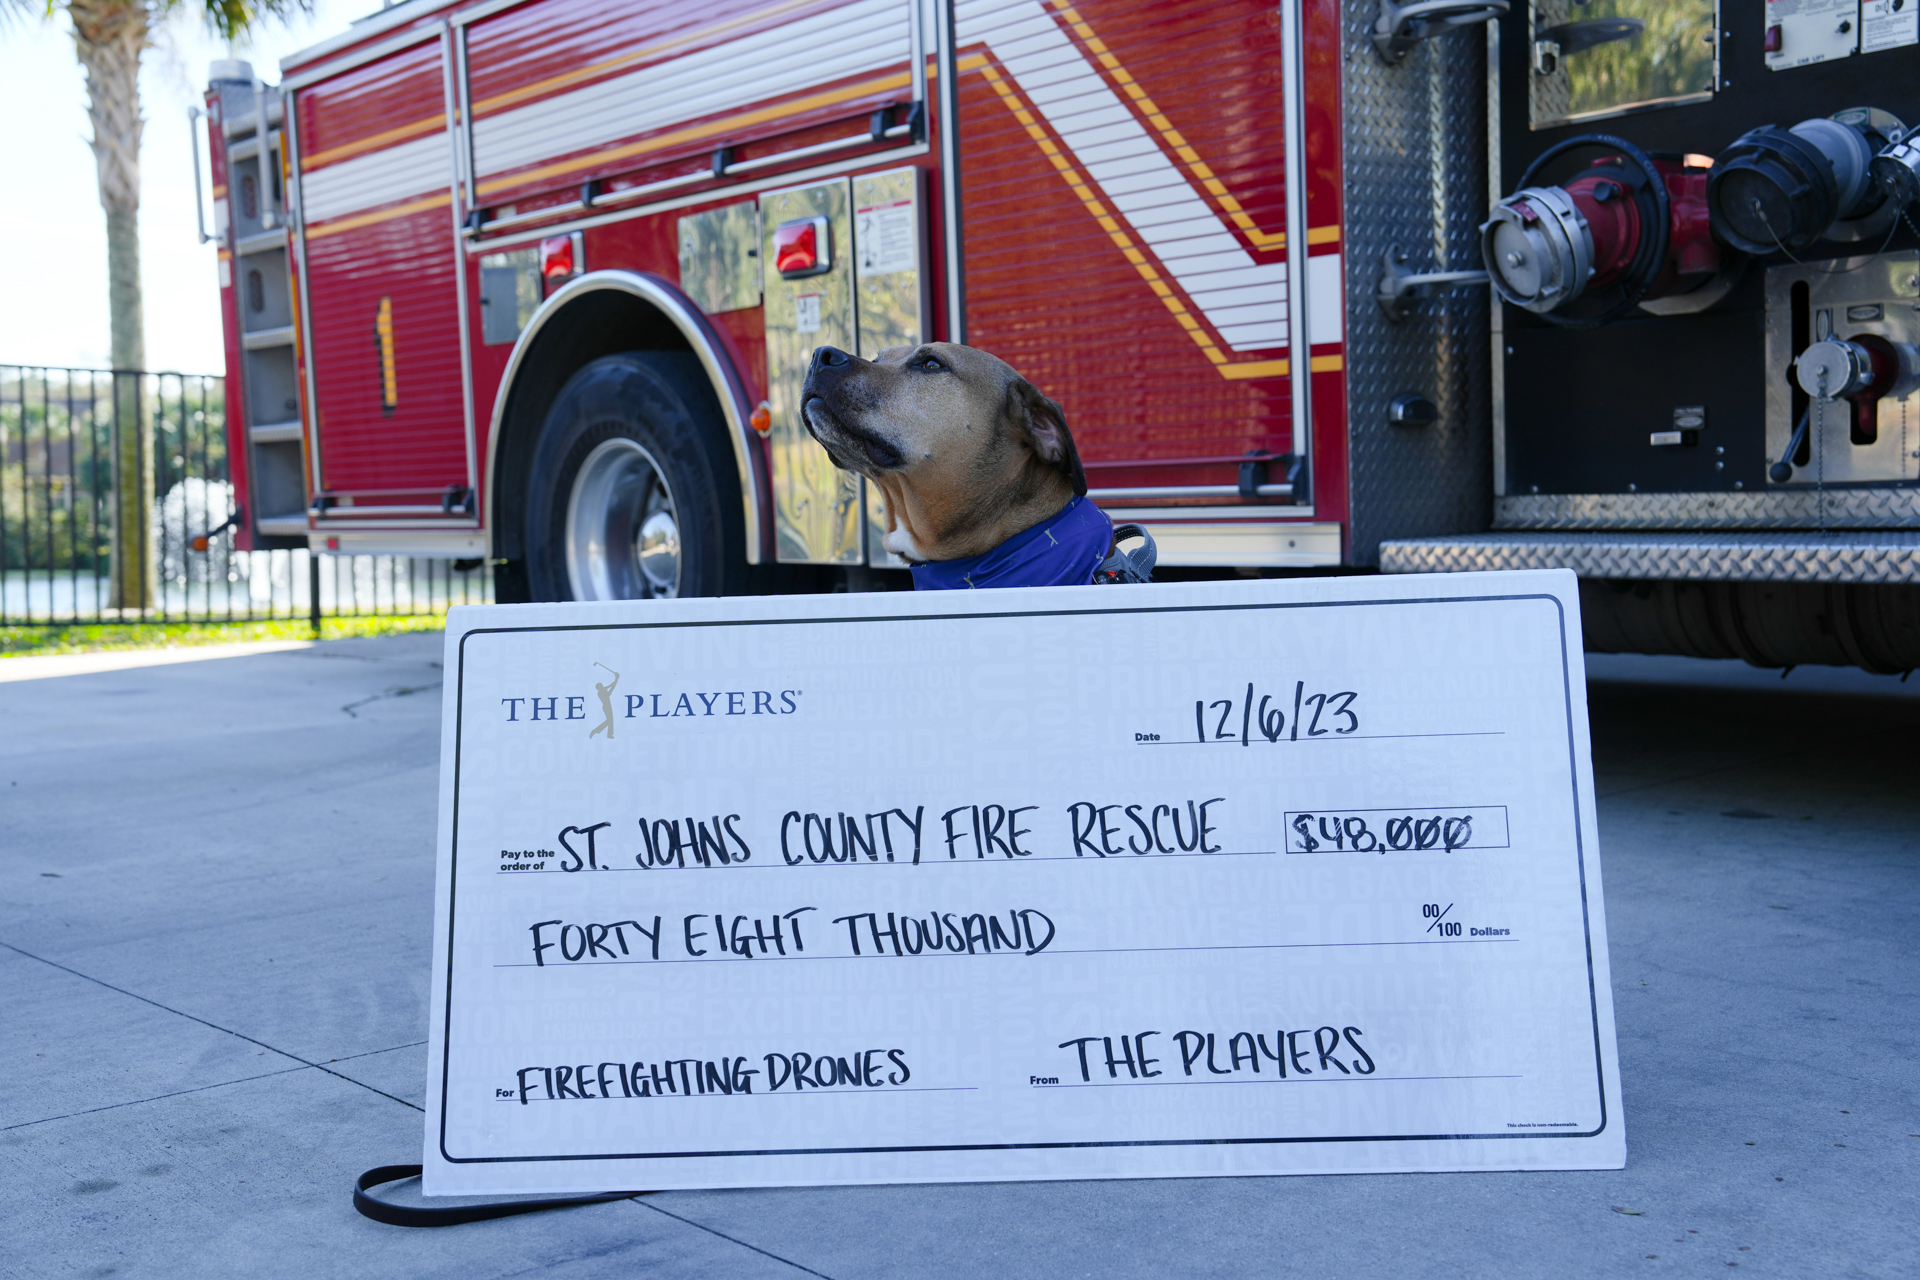 THE PLAYERS
Date 12/6/23
Pay to the order of ST. JOHNS COUNTY FIRE RESCUE $48,000
FORTY EIGHT THOUSAND 00/100 Dollars
For FIREFIGHTING DRONES From THE PLAYERS
This check is non-redeemable.